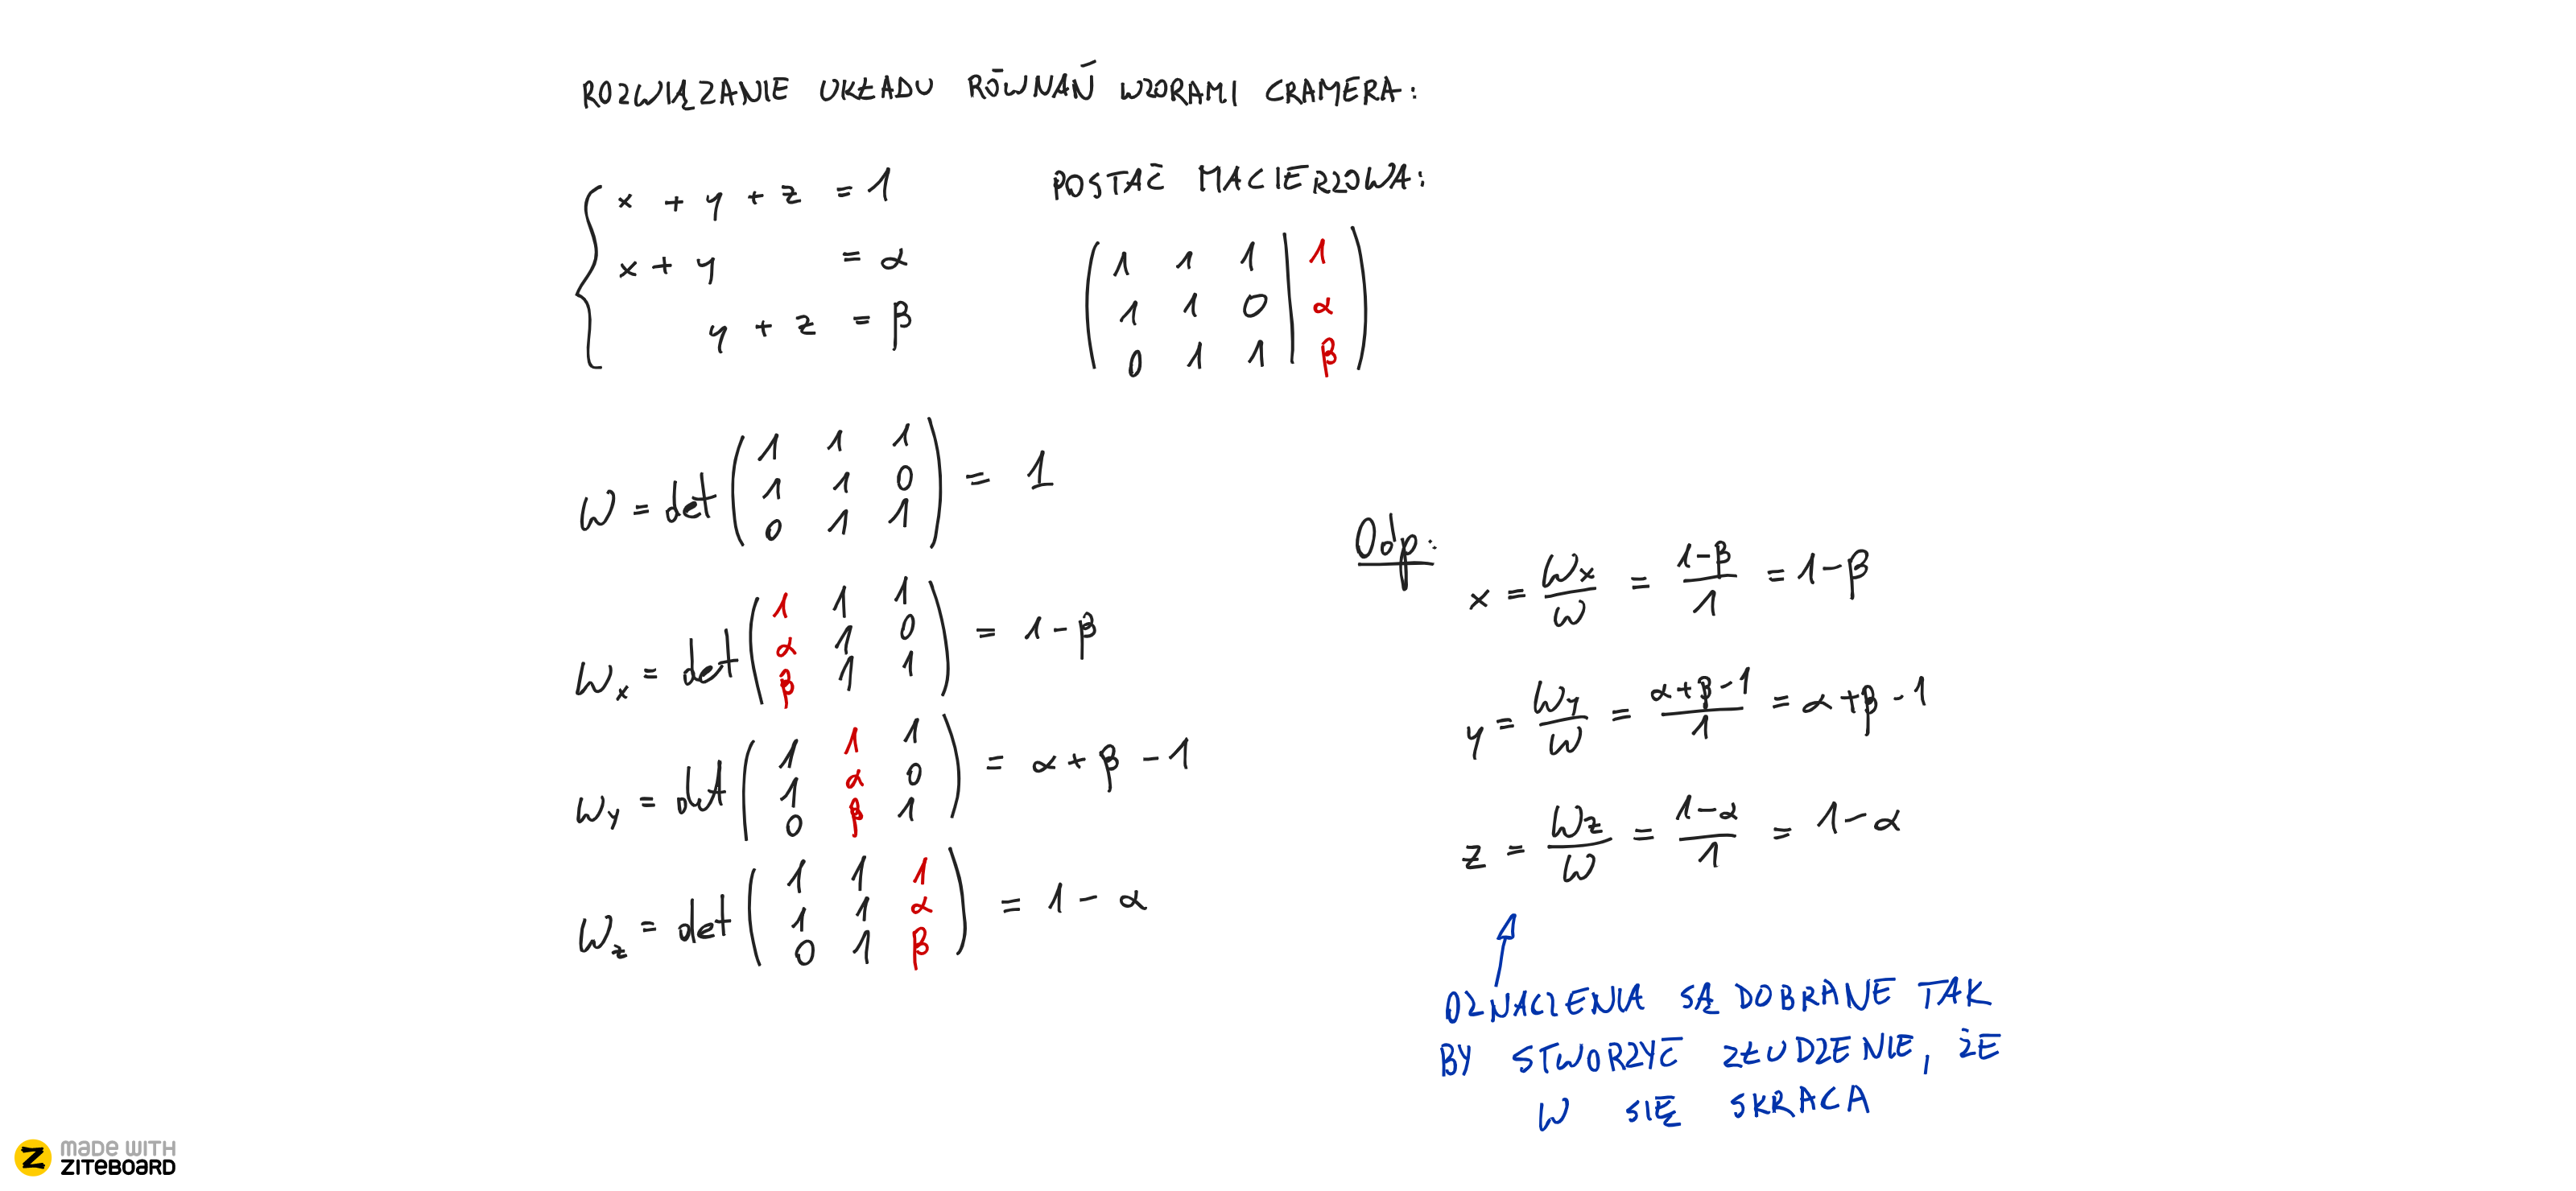 ROZWIĄZANIE UKŁADU RÓWNAŃ WZORAMI CRAMERA:
x + y + z = 1
x + y = α
y + z = β
POSTAĆ MACIERZOWA:
1 1 1 | 1
1 1 0 | α
0 1 1 | β
W = det ( 1 1 1
1 1 0
0 1 1 ) = 1
Wx = det ( 1 1 1
α 1 0
β 1 1 ) = 1-β
Wy = det ( 1 1 1
1 α 0
0 β 1 ) = α+β-1
Wz = det ( 1 1 1
1 1 α
0 1 β ) = 1-α
Odp:
x = Wx/W = (1-β)/1 = 1-β
y = Wy/W = (α+β-1)/1 = α+β-1
z = Wz/W = (1-α)/1 = 1-α
OZNACZENIA SĄ DOBRANE TAK
BY STWORZYĆ ZŁUDZENIE, ŻE
W SIĘ SKRACA
MADE WITH
ZITEBOARD